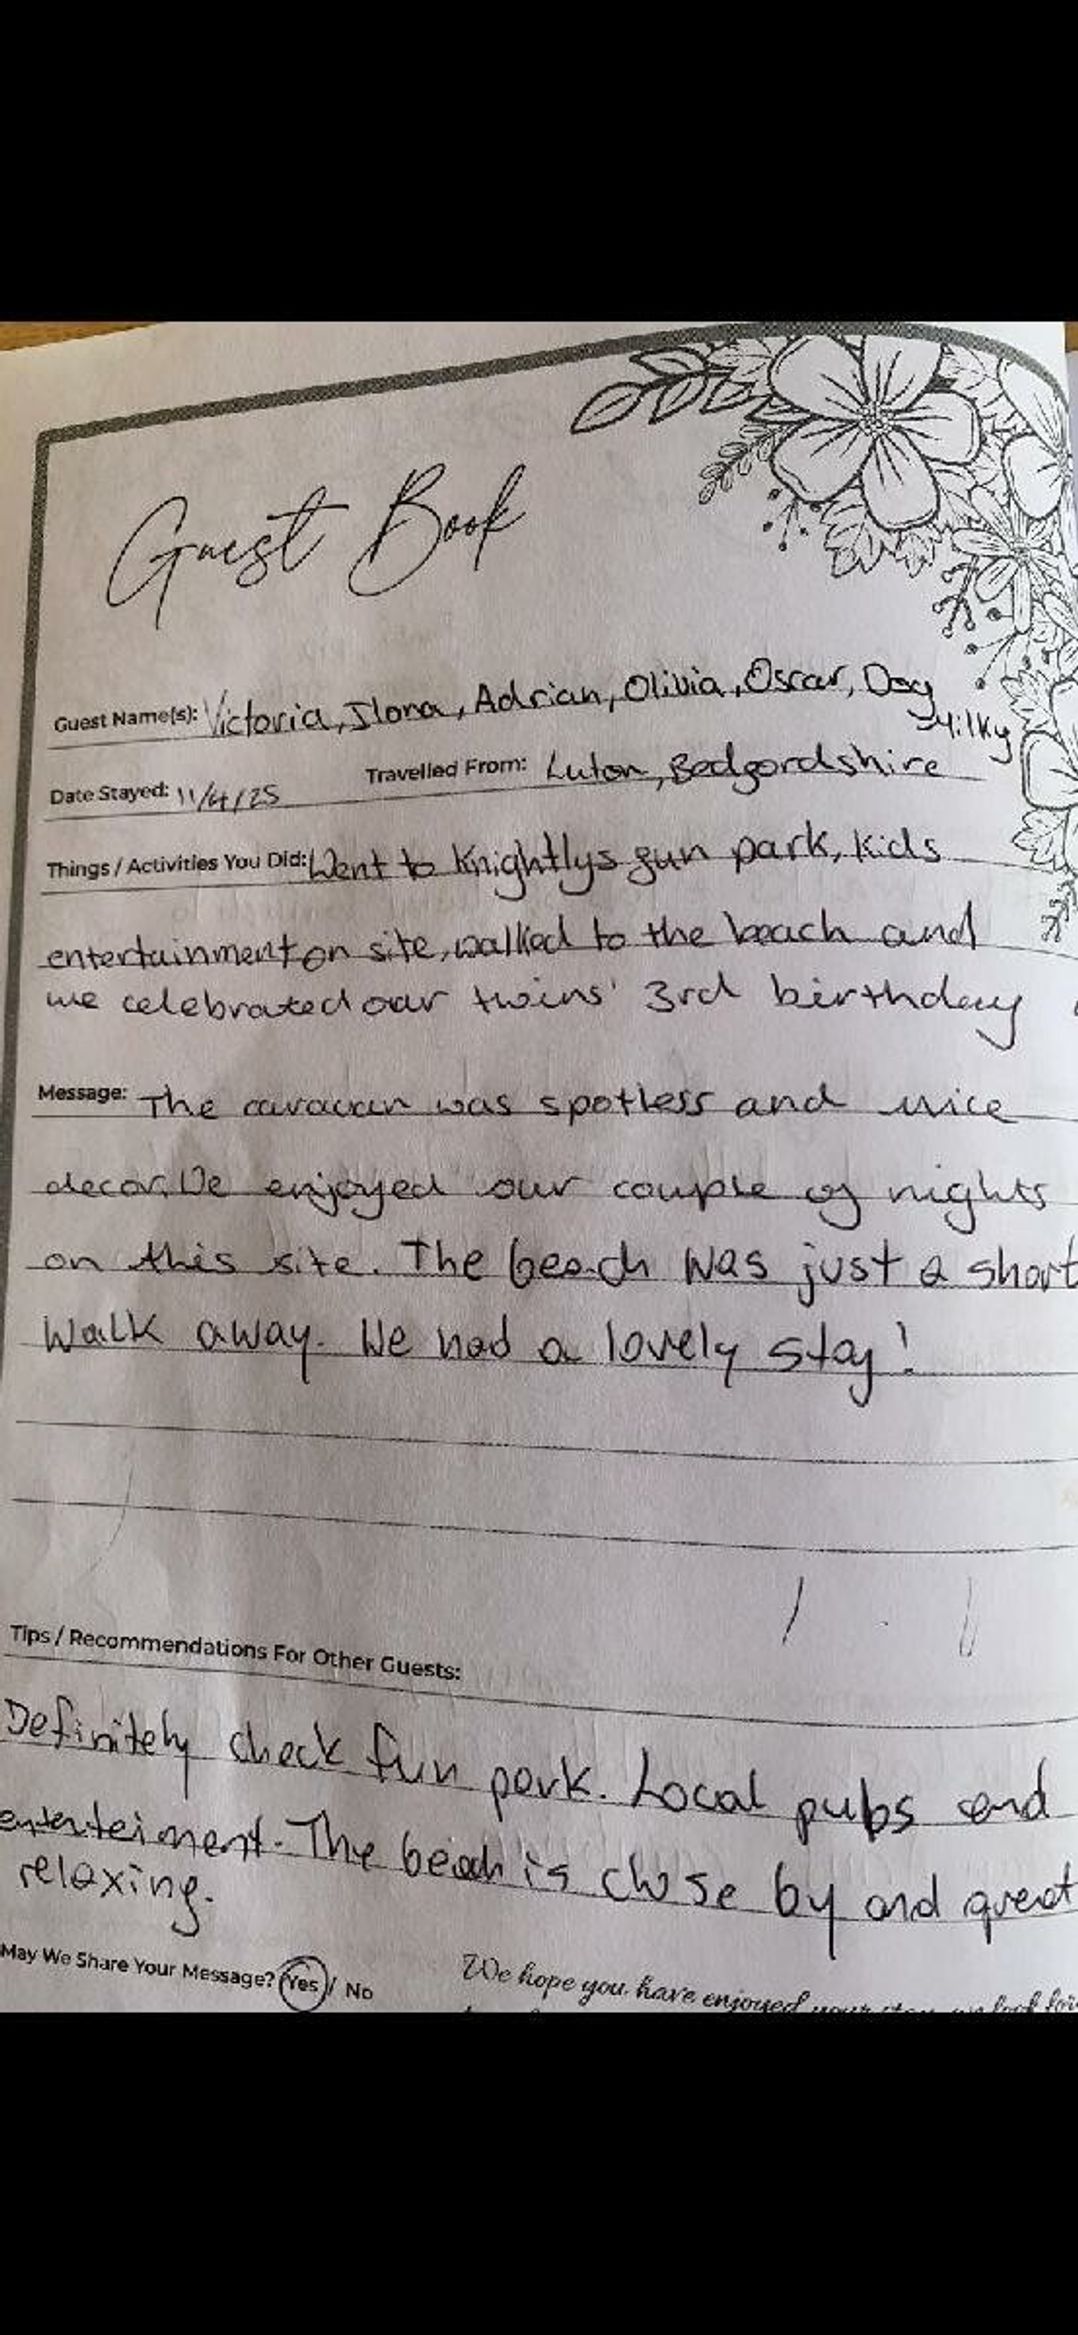 Guest Book
Guest Name(s): Victoria, Ilona, Adrian, Olivia, Oscar, Dog
Milky
Date Stayed: 11/4/25 Travelled From: Luton, Bedfordshire
Things / Activities You Did: Went to Knightlys fun park, kids
entertainment on site, walked to the beach and
we celebrated our twins' 3rd birthday
Message: The caravan was spotless and nice
decor. We enjoyed our couple of nights
on this site. The beach was just a short
walk away. We had a lovely stay!
Tips / Recommendations For Other Guests:
Definitely check fun park. Local pubs and
enterteiment. The beach is close by and great
relaxing.
May We Share Your Message? Yes / No We hope you have enjoyed your stay, we look